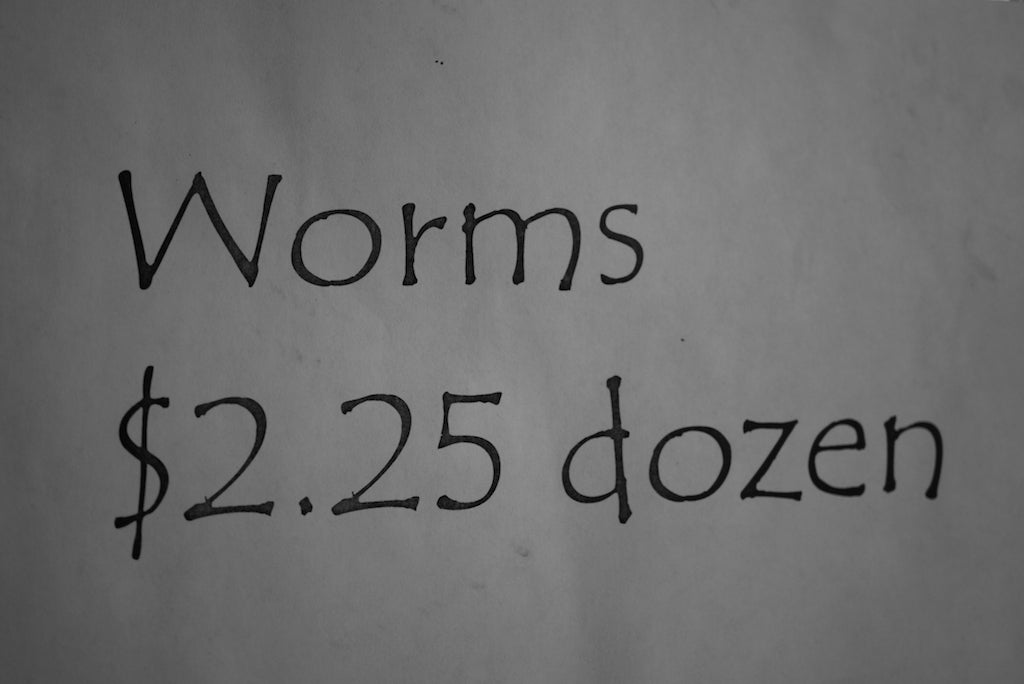 Worms
$2.25 dozen